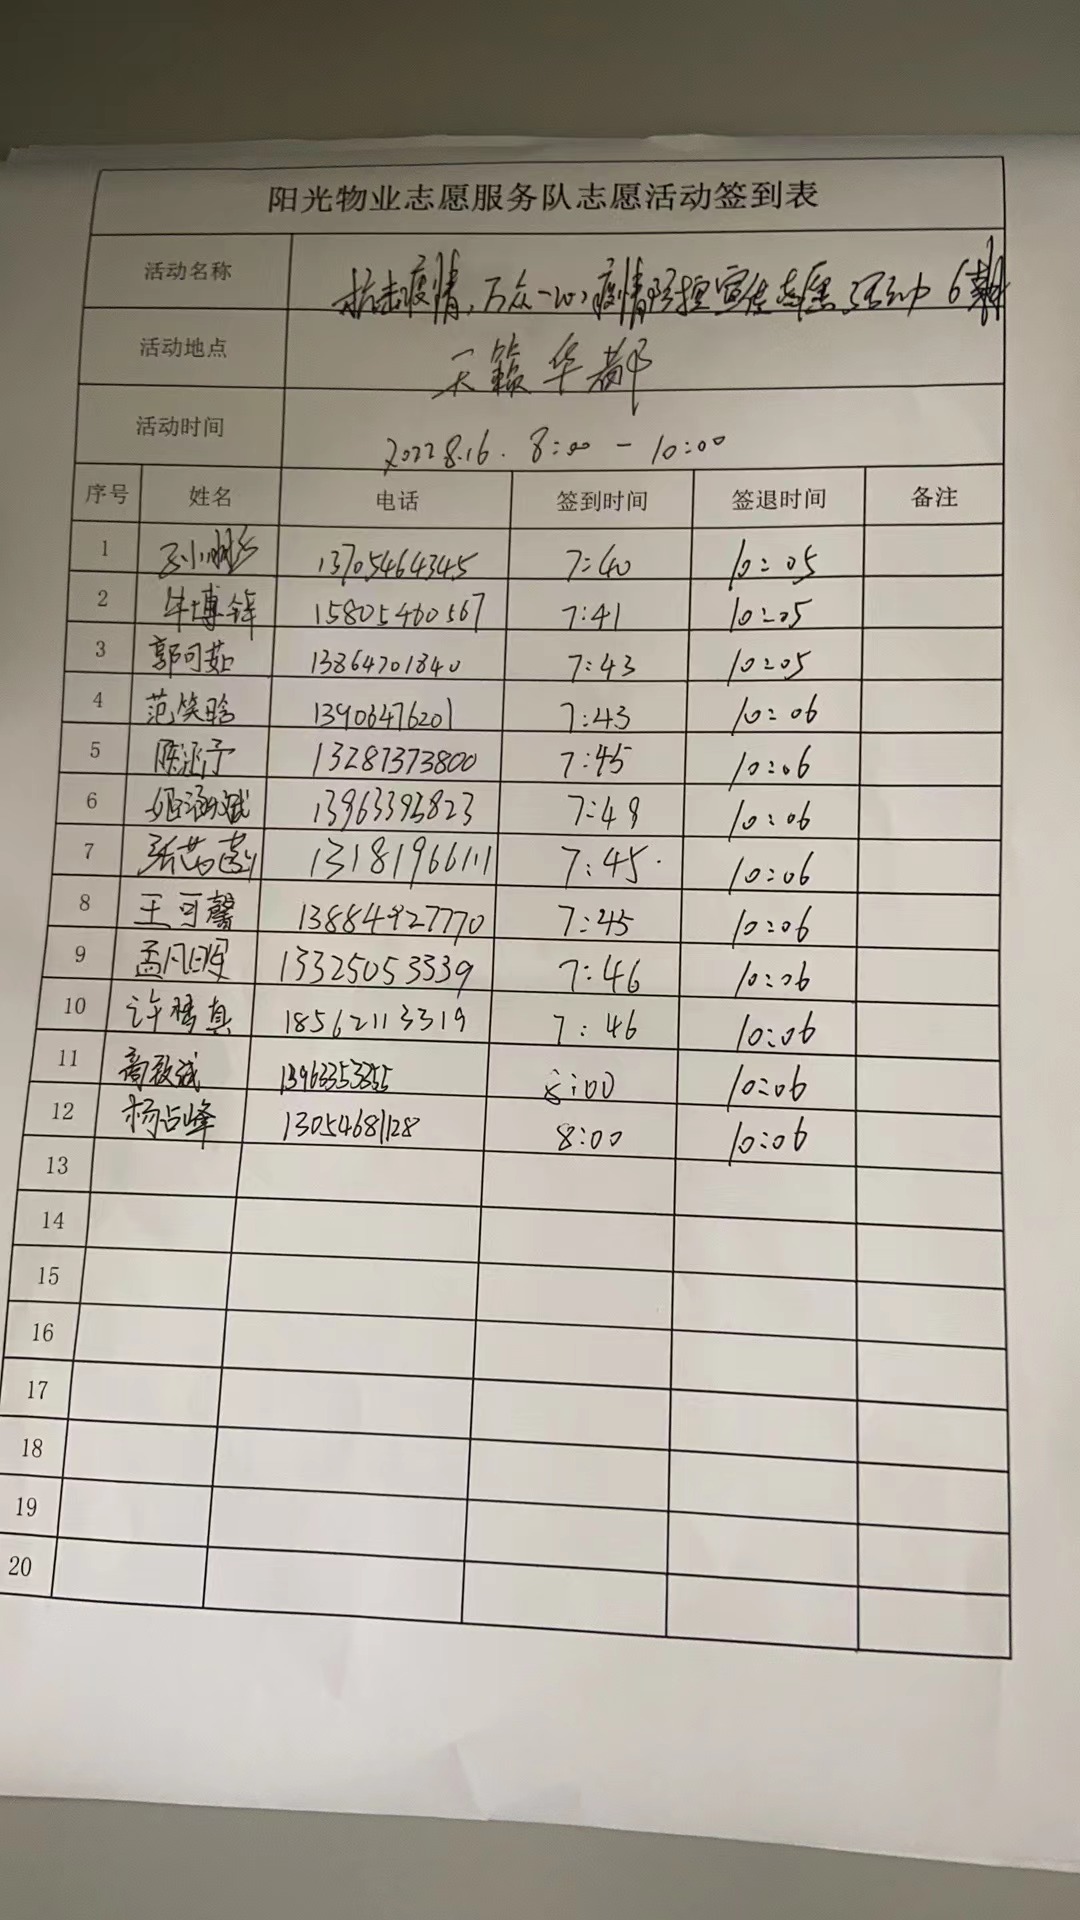 阳光物业志愿服务队志愿活动签到表
活动名称 抗击疫情，万众一心，疫情防控宣传志愿活动 6期
活动地点 天籁华都
活动时间 2022.8.16. 8:00 - 10:00
序号 姓名 电话 签到时间 签退时间 备注
1 13705464345 7:40 10:05
2 牛博锌 15805460567 7:41 10:05
3 郭可茹 13864701840 7:43 10:05
4 范笑晗 13906476201 7:43 10:06
5 陈泓予 13287373800 7:45 10:06
6 13963393823 7:48 10:06
7 13181966111 7:45 10:06
8 王可馨 13884927770 7:45 10:06
9 孟凡明 13325053339 7:46 10:06
10 许 真 18562113319 7:46 10:06
11 商致诚 13963353355 8:00 10:06
12 杨占峰 13054681128 8:00 10:06
13
14
15
16
17
18
19
20